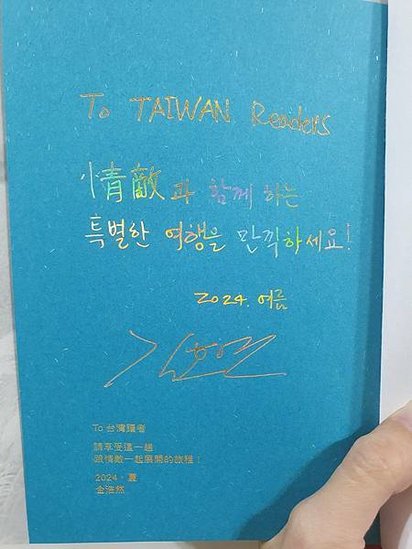 To TAIWAN Readers
情敵과 함께 하는
특별한 여행을 만끽하세요!
2024. 여름
To 台灣讀者
請享受這一趟
跟情敵一起展開的旅程！
2024・夏
金浩然